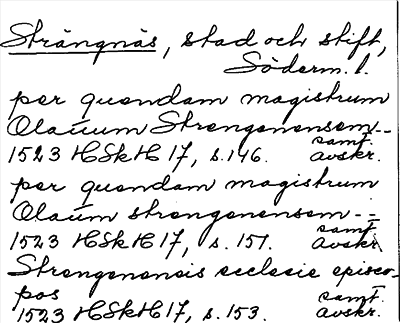 Strängnäs, stad och stift,
Söderm. l.
per quendam magistrum
Olauum Strengenensem --
1523 HSkH 17, s. 146. samt. avskr.
per quendam magistrum
Olaum strengenensem --
1523 HSkH 17, s. 151. samt. avskr.
Strengenensis ecclesie episco-
pos
1523 HSkH 17, s. 153. samt. avskr.